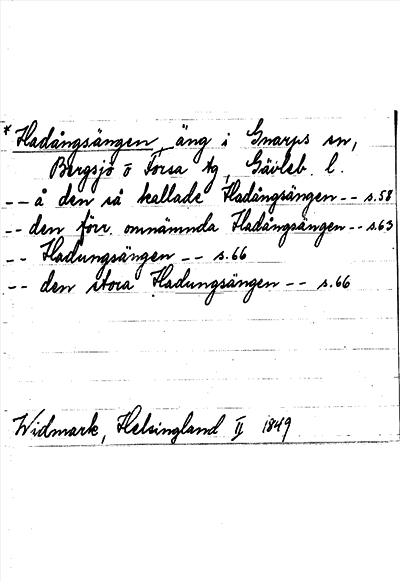 * Hadångsängen, äng i Gnarps sn,
Bergsjö o Forsa tg, Gävleb. l.
-- å den så kallade Hadångsängen -- s.58
-- den förr omnämnda Hadångsängen -- s.63
-- Hadungsängen -- s.66
-- den stora Hadungsängen -- s.66
Widmark, Helsingland II 1849